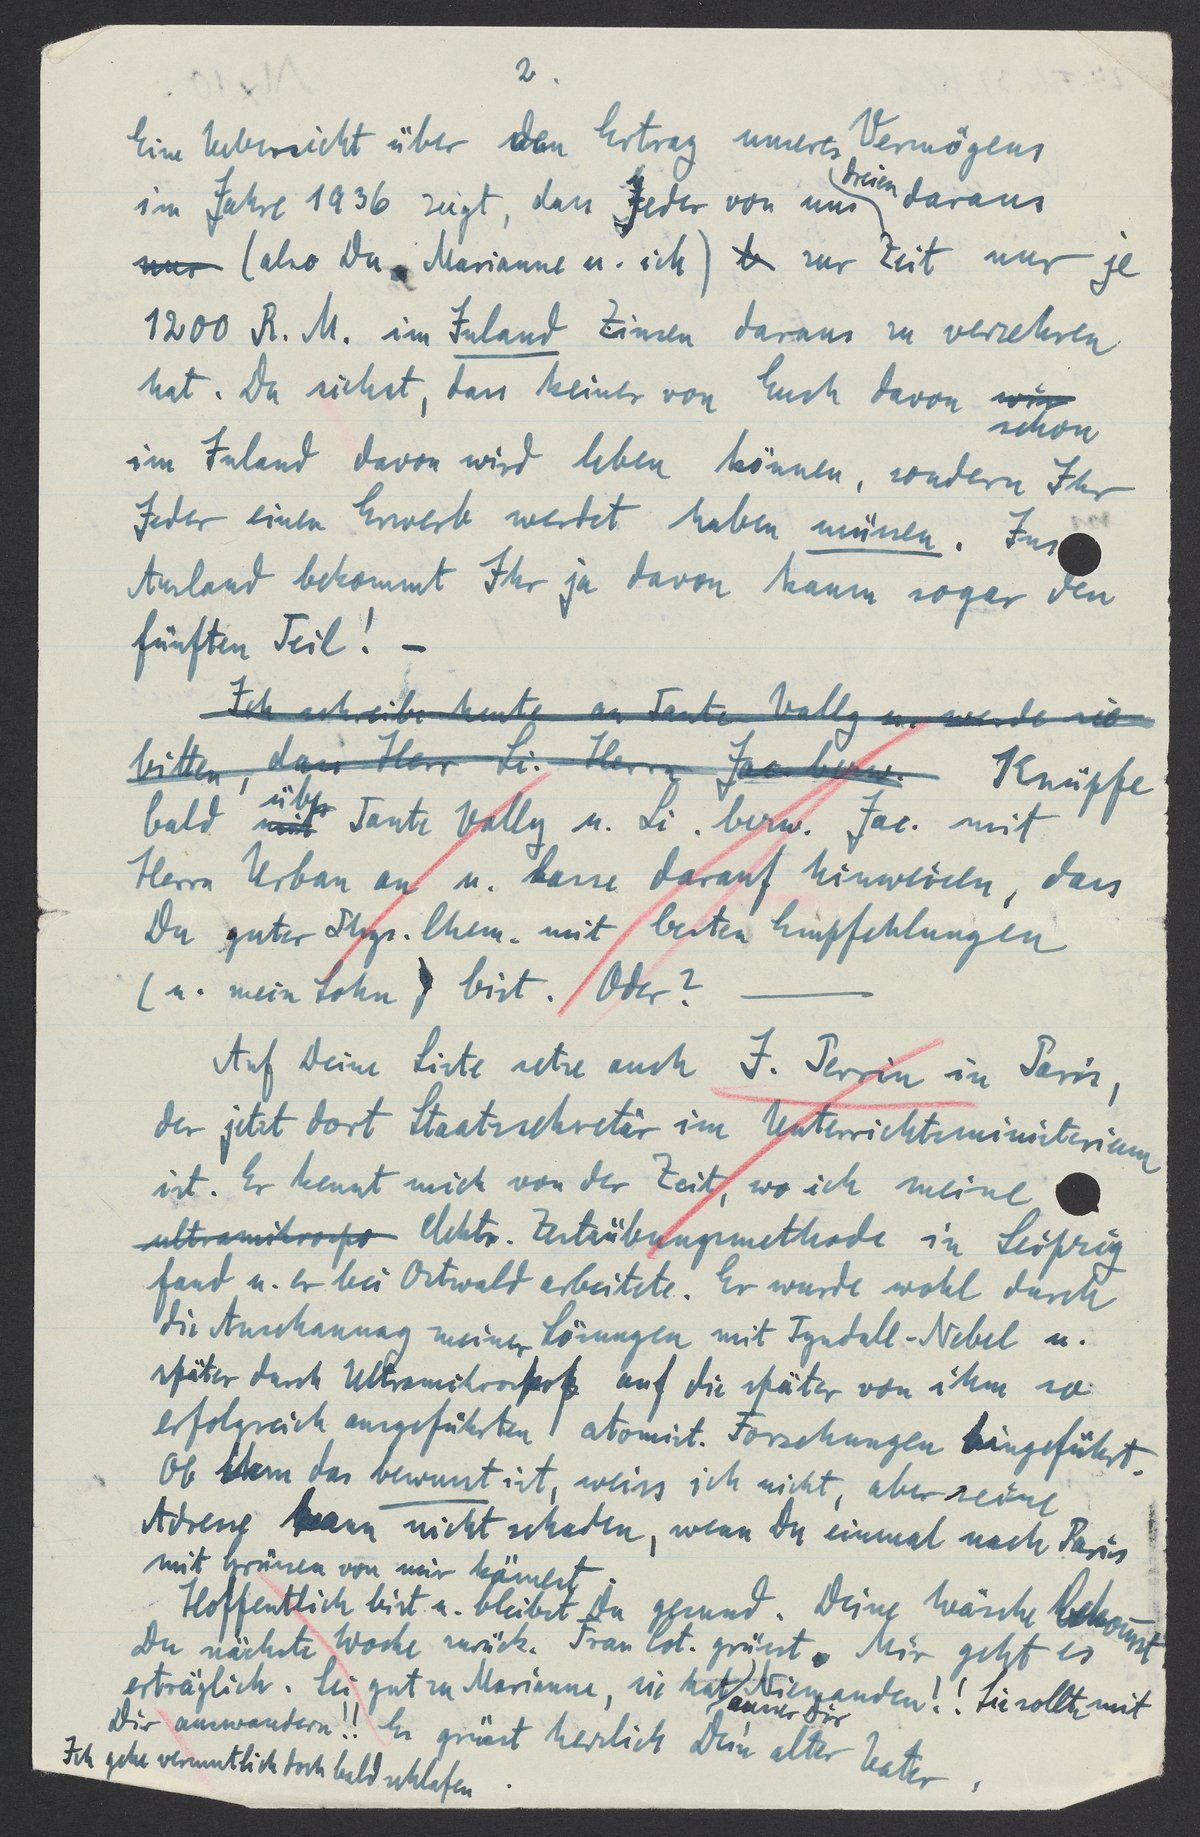 2.
Eine Uebersicht über den Ertrag unseres Vermögens
im Jahre 1936 zeigt, dass Jeder von uns dreien daraus
nur (also Du, Marianne u. ich) zur Zeit nur je
1200 R. M. im Inland Zinsen daraus zu verzehren
hat. Du siehst, dass keiner von Euch davon wir
schon
im Inland davon wird leben können, sondern Ihr
Jeder einen Erwerb werdet haben müssen. Ins
Ausland bekommt Ihr ja davon kaum sogar den
fünften Teil! —
Ich schreibe heute an Tante Vally u. werde sie
bitten, dass Herr Li. Herrn Jac. bezw. Knüpfe
bald mit über Tante Vally u. Li. bezw. Jac. mit
Herrn Urban an u. lasse darauf hinweisen, dass
Du guter Phys. Chem. mit besten Empfehlungen
(u. mein Sohn) bist. Oder? —
Auf Deine Liste setze auch J. Perrin in Paris,
der jetzt dort Staatssekretär im Unterrichtsministerium
ist. Er kennt mich von der Zeit, wo ich meine
ultramikrospo elektr. Zerstäubungsmethode in Leipzig
fand u. er bei Ostwald arbeitete. Er wurde wohl durch
die Anschauung meiner Lösungen mit Tyndall-Nebel u.
später durch Ultramikroskop auf die später von ihm so
erfolgreich ausgeführten atomist. Forschungen hingeführt.
Ob ihm das bewusst ist, weiss ich nicht, aber seine
Adresse kann nicht schaden, wenn Du einmal nach Paris
mit Grüssen von mir kämest.
Hoffentlich bist u. bleibst Du gesund. Deine Wäsche bekommst
Du nächste Woche zurück. Frau Cot. grüsst. Mir geht es
erträglich. Sei gut zu Marianne, sie hat ausser Dir Niemanden!! Sie sollte mit
Dir auswandern!! Es grüsst herzlich Dein alter Vater.
Ich gehe vermutlich doch bald schlafen.